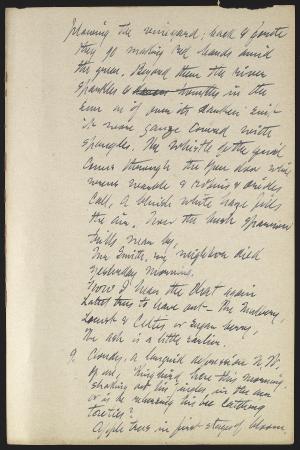 planting the vineyard; back & forth
they go making red bands amid
the green. Beyond them the river
sparkles & trembles in the
sun as if over its
it were gauze covered with
spangles. The whistle of the quail
comes through the open door with
wrens warble & robins & orioles
call, a bluish white haze fills
the air. Now the bush sparrow
trills near by.
Mr Smith, my neighbor died
yesterday morning.
Now I hear the Chat again
Latest trees to leave out - The mulberry,
Locust & Celtis, or sugar berry,
The ash is a little earlier.
9. Cloudy, a languid depression N.W.
by me, Kingbird here this morning.
shaking out his in the sun
or is he rehearsing his bee catching
tactics?
Apple trees in first stages of bloom